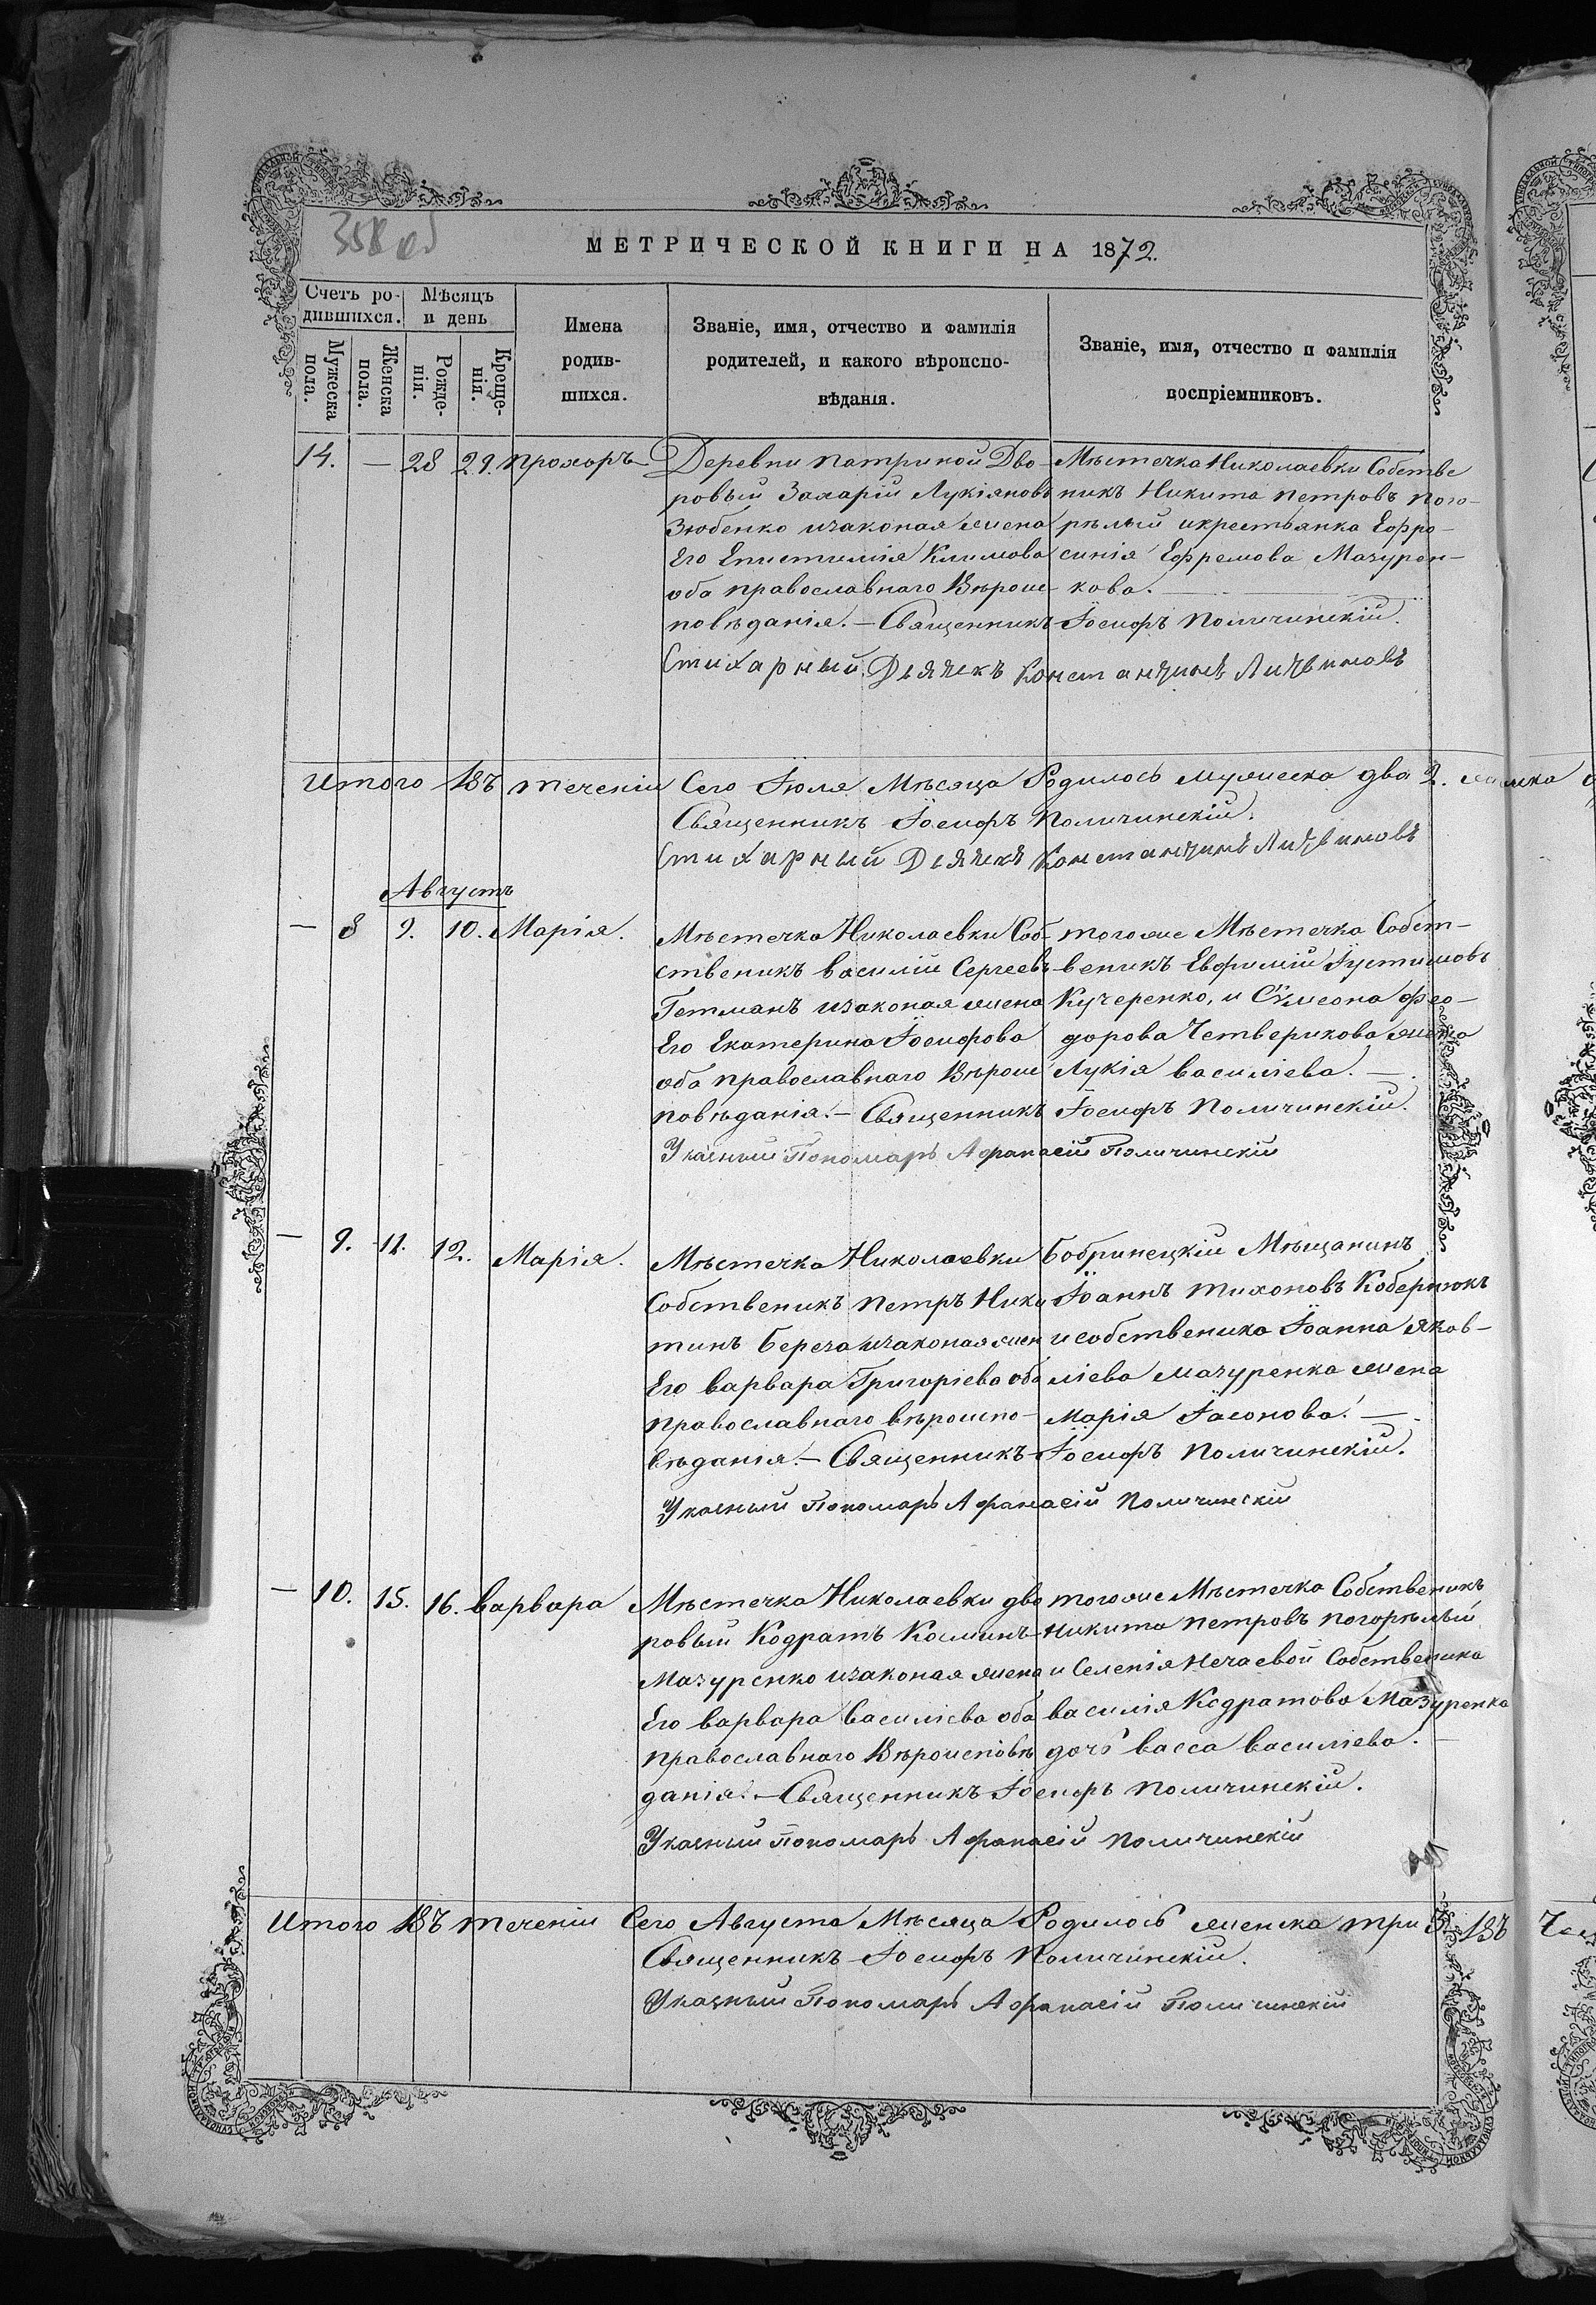 358 об
МЕТРИЧЕСКОЙ КНИГИ НА 1872.
Счетъ ро-
дившихся.
Мѣсяцъ
и день
Мужеска
пола.
Женска
пола.
Рожде-
нія.
Креще-
нія.
Имена
родив-
шихся.
Званіе, имя, отчество и фамилія
родителей, и какого вѣроиспо-
вѣданія.
Званіе, имя, отчество и фамилія
воспріемниковъ.
14. — 28 29. Прохоръ
Деревни Патриной Дво-
ровый Захарій Лукіяновъ
Зюбенко изаконая жена
Его Епистимія Климова
оба православнаго Вѣроис-
повѣданія. — Священникъ Іосифъ Поличинскій.
Мѣстечка Николаевки Собстве
никъ Никита Петровъ Пого-
рѣлый икрестьянка Ефро-
синія Ефремова Мазурен-
кова.
Стихарный Дьячекъ Константинъ Литвиновъ
Итого Въ теченіи Сего Іюля Мѣсяца Родилось мужеска два 2. женска
Священникъ Іосифъ Поличинскій.
Стихарный Дьячекъ Константинъ Литвиновъ
Августъ
— 8 9. 10. Марія.
Мѣстечка Николаевки Соб-
ственикъ Василій Сергеевъ
Гетманъ изаконая жена
Его Екатерина Іосифова
оба православнаго Вѣроис
повѣданія. — Священникъ Іосифъ Поличинскій.
тогоже Мѣстечка Собст-
веникъ Евфимій Іустиновъ
Кучеренко, и Сѵмеона Фео-
дорова Четверикова жена
Лукія Василіева. —
Указный Пономарь Афанасій Поличинскій
— 9. 11. 12. Марія.
Мѣстечка Николаевки
Собственикъ Петръ Ники
тинъ Береза изаконая жен
Его Варвара Григоріева оба
православнаго вѣроиспо-
вѣданія. — Священникъ Іосифъ Поличинскій.
Бобринецкій Мѣщанинъ
Іоаннъ Тихоновъ Кобернюкъ
исобственика Іоанна Яков-
ліева Мазуренка жена
Марія Іасонова. —
Указный Пономарь Афанасій Поличинскій
— 10. 15. 16. Варвара
Мѣстечка Николаевки дво
ровый Кодратъ Косминъ
Мазуренко изаконая жена
Его Варвара Василіева оба
православнаго Вѣроисповѣ
данія. — Священникъ Іосифъ Поличинскій.
тогоже Мѣстечка Собственикъ
Никита Петровъ Погорѣлый
и Селенія Нечаевой Собственика
Василія Кодратова Мазуренка
дочь Васса Василіева.
Указный Пономарь Афанасій Поличинскій
Итого Въ теченіи Сего Августа Мѣсяца Родилось женска три 3. Въ
Священникъ Іосифъ Поличинскій.
Указный Пономарь Афанасій Поличинскій